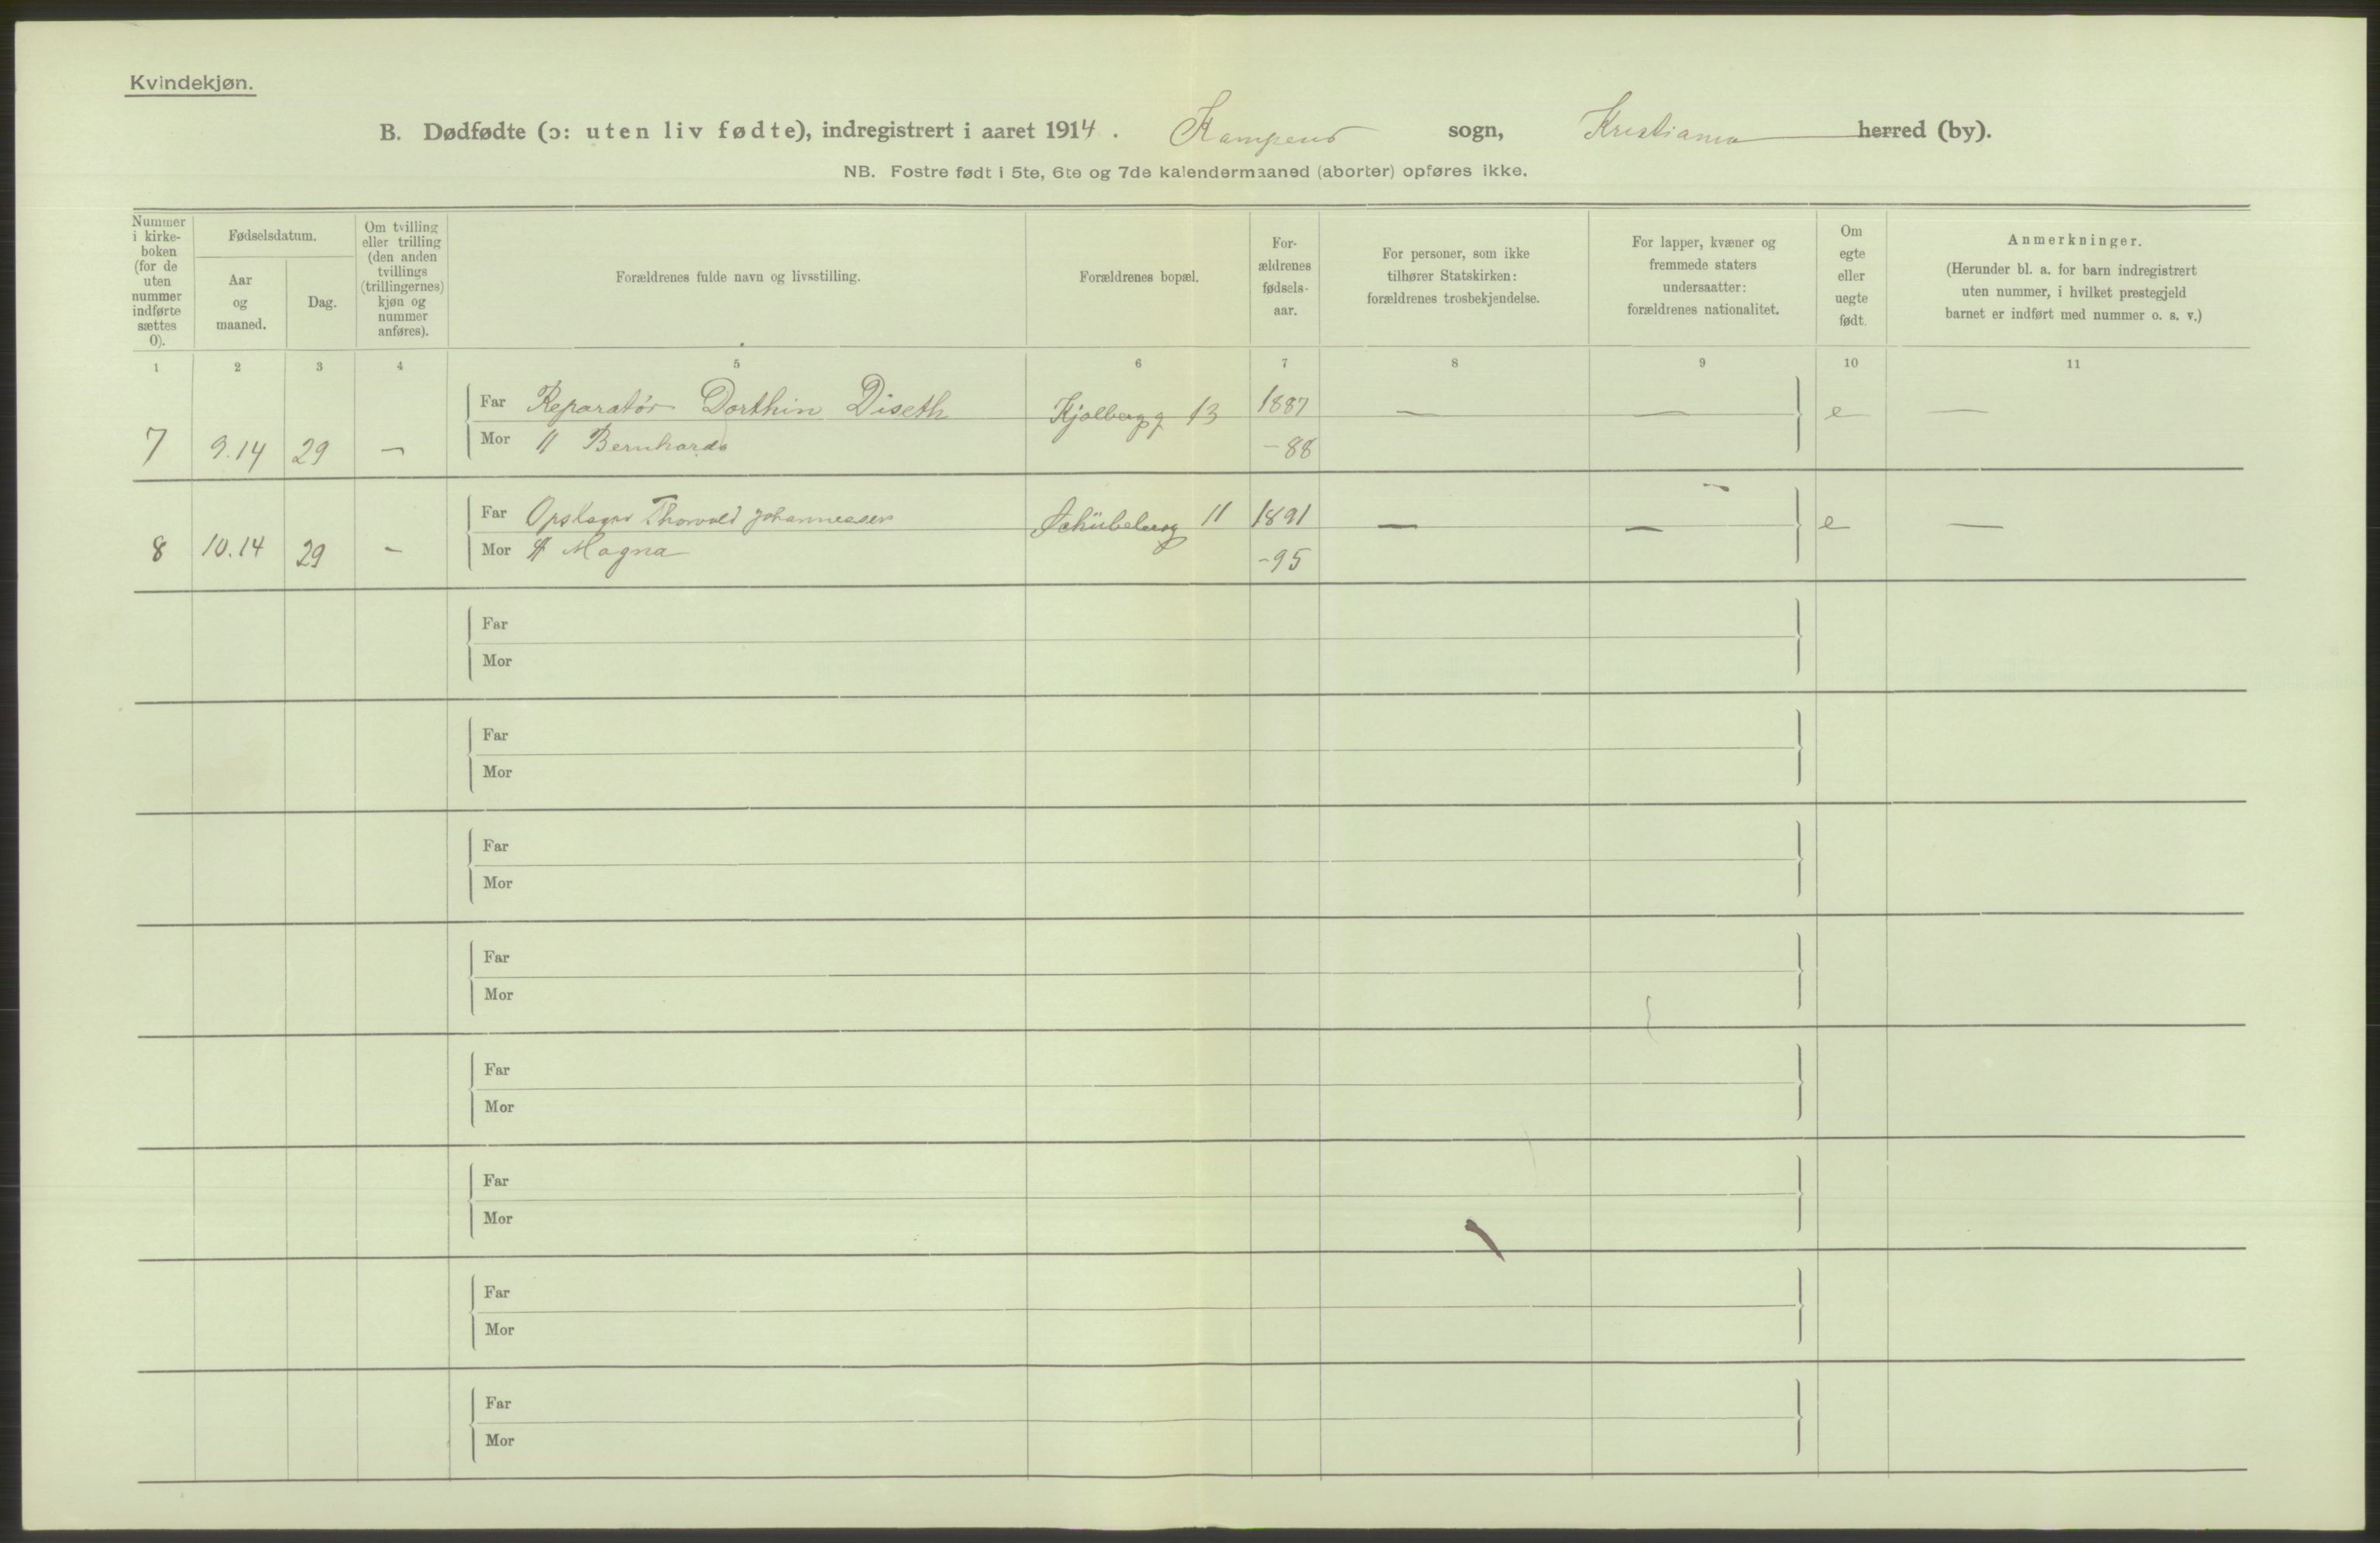 Kvindekjøn.
B. Dødfødte (ɔ: uten liv fødte), indregistrert i aaret 1914. Kampens sogn, Kristiania herred (by).
NB. Fostre født i 5te, 6te og 7de kalendermaaned (aborter) opføres ikke.
Nummer i kirke-boken (for de uten nummer indførte sættes 0).
Fødselsdatum.
Aar og maaned.
Dag.
Om tvilling eller trilling (den anden tvillings (trillingernes) kjøn og nummer anføres).
Forældrenes fulde navn og livsstilling.
Forældrenes bopæl.
For-ældrenes fødsels-aar.
For personer, som ikke tilhører Statskirken: forældrenes trosbekjendelse.
For lapper, kvæner og fremmede staters undersaatter: forældrenes nationalitet.
Om egte eller uegte født.
Anmerkninger.
(Herunder bl. a. for barn indregistrert uten nummer, i hvilket prestegjeld barnet er indført med nummer o. s. v.)
1 2 3 4 5 6 7 8 9 10 11
Far Reparatør Dorthin Diseth Kjølbergg 13 1887 — — e —
7 9.14 29 — Mor " Bernharda -88
Far Thorvald Johannessen Schübelersg 11 1891 — — e —
8 10.14 29 - Mor " Magna -95
Far
Mor
Far
Mor
Far
Mor
Far
Mor
Far
Mor
Far
Mor
Far
Mor
Far
Mor